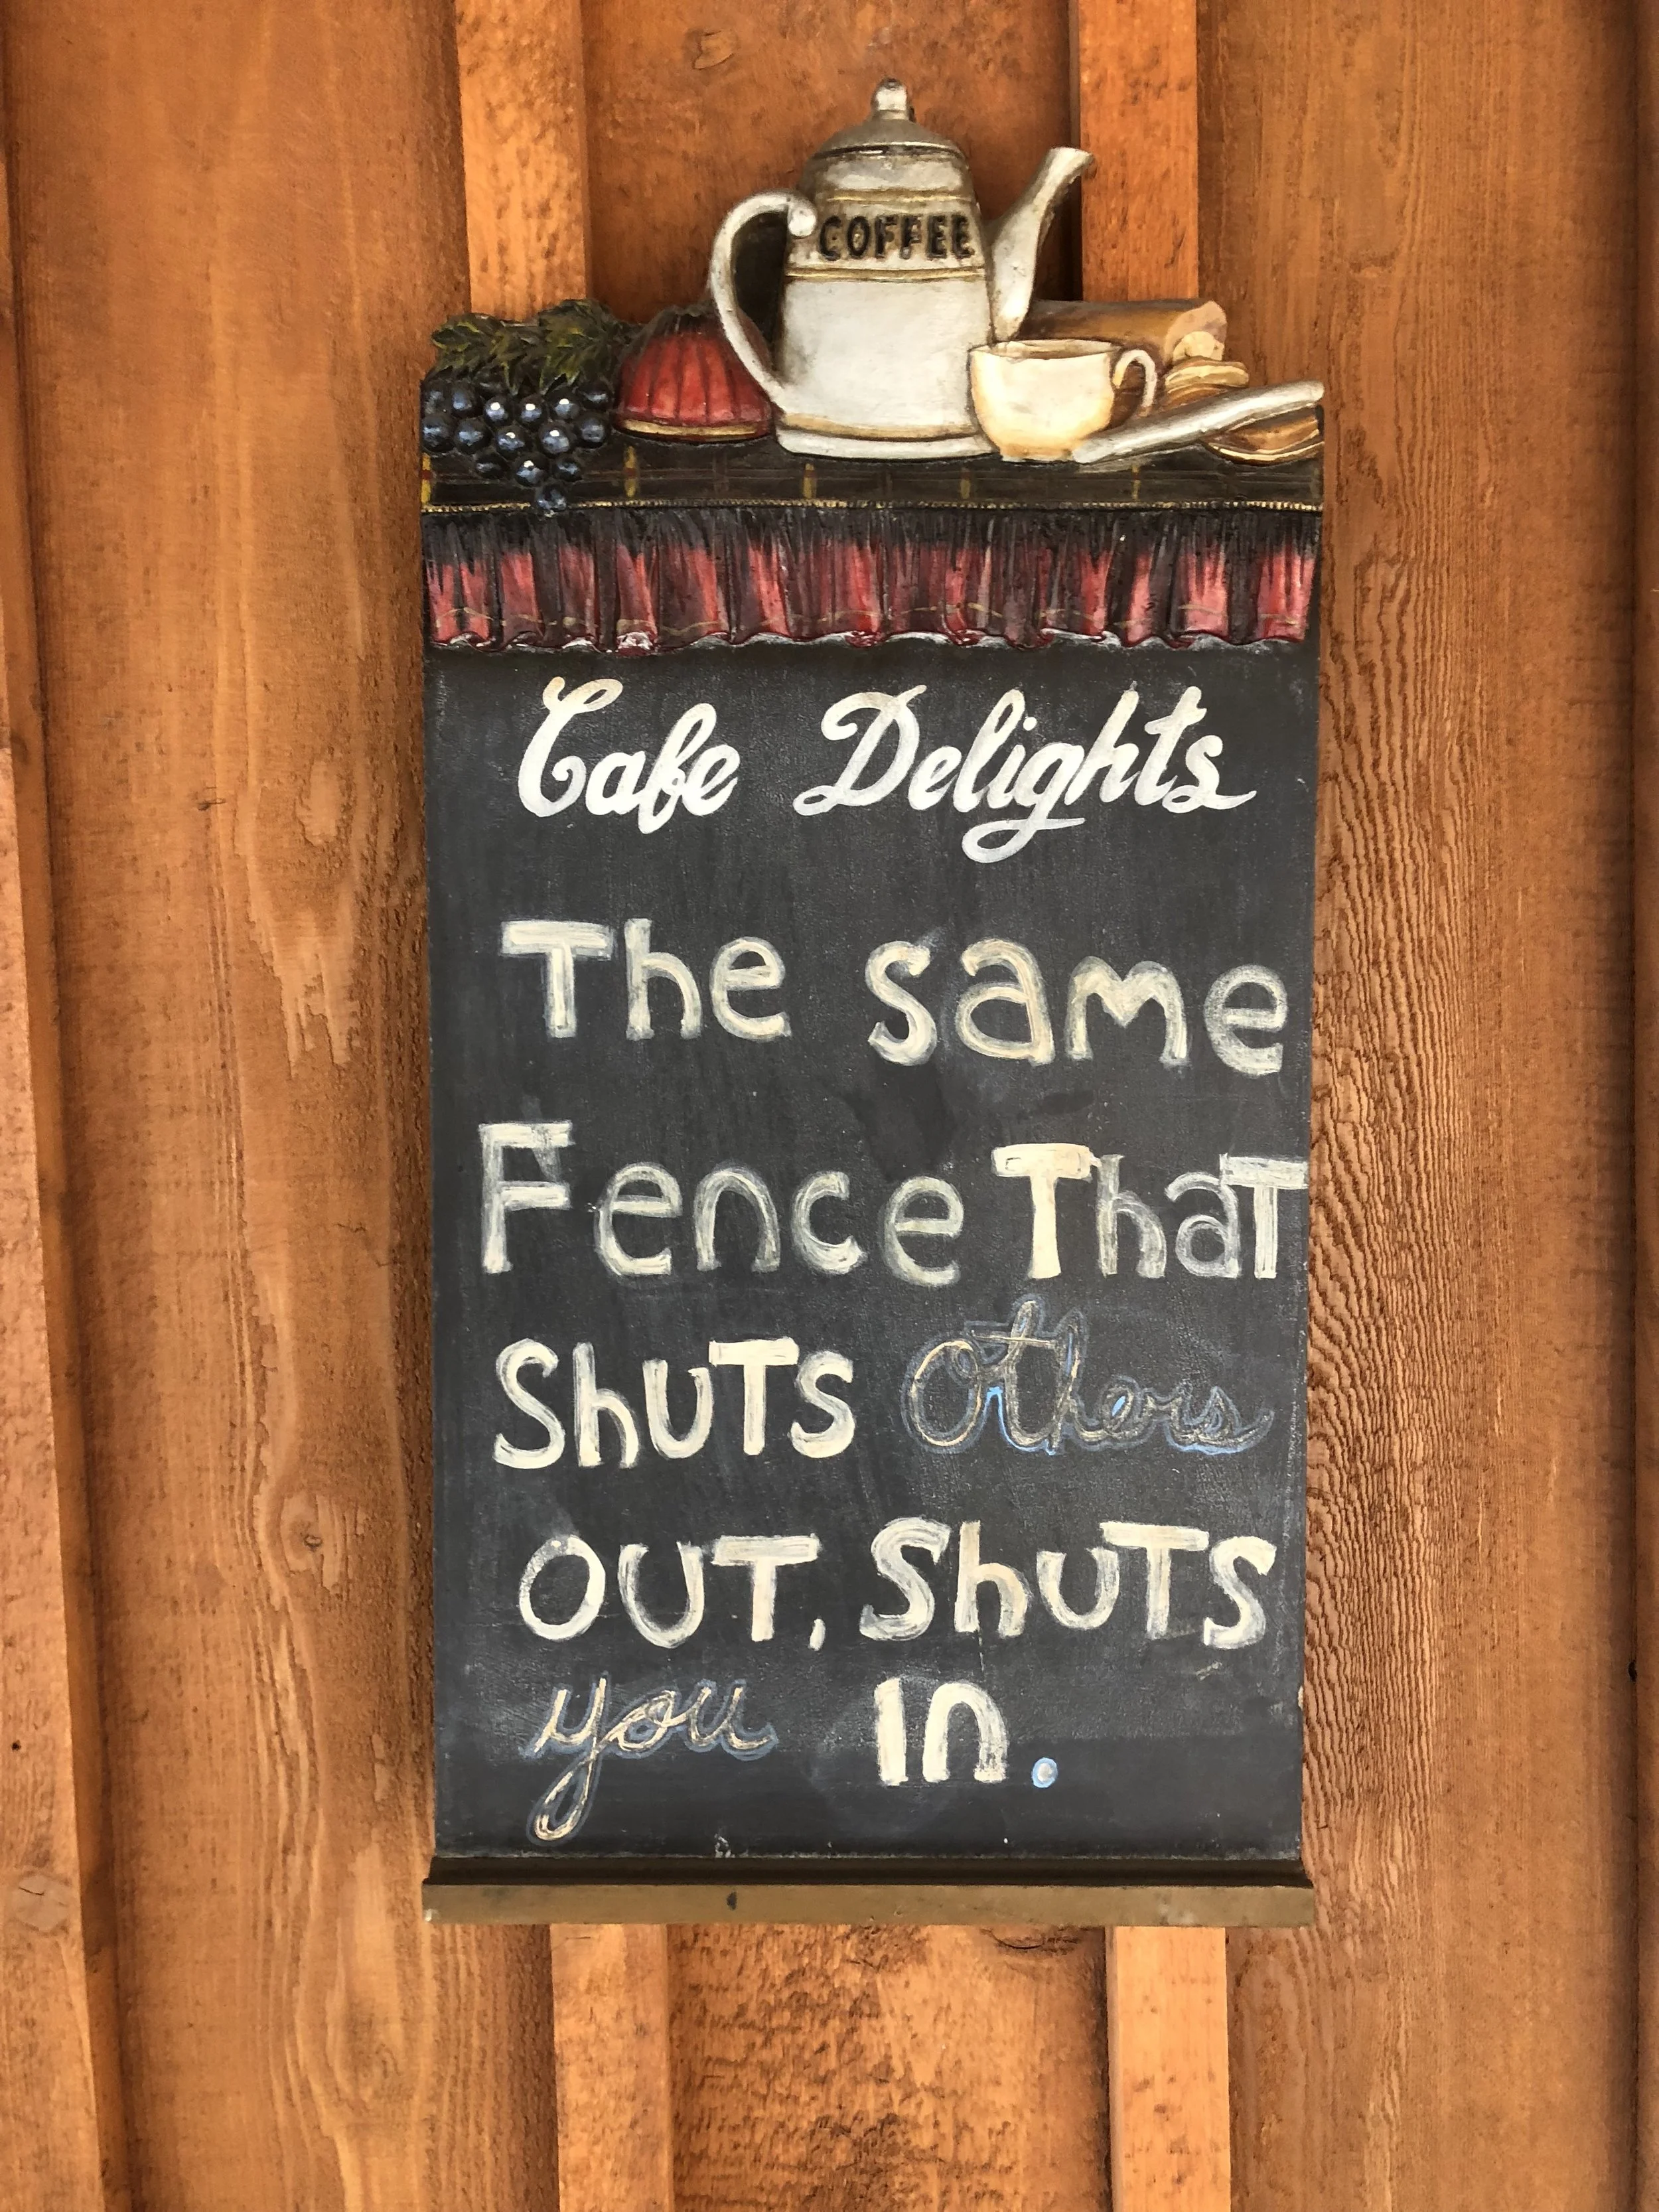 COFFEE
Cafe Delights
The same
Fence ThaT
ShuTs others
OuT, ShuTs
you In.